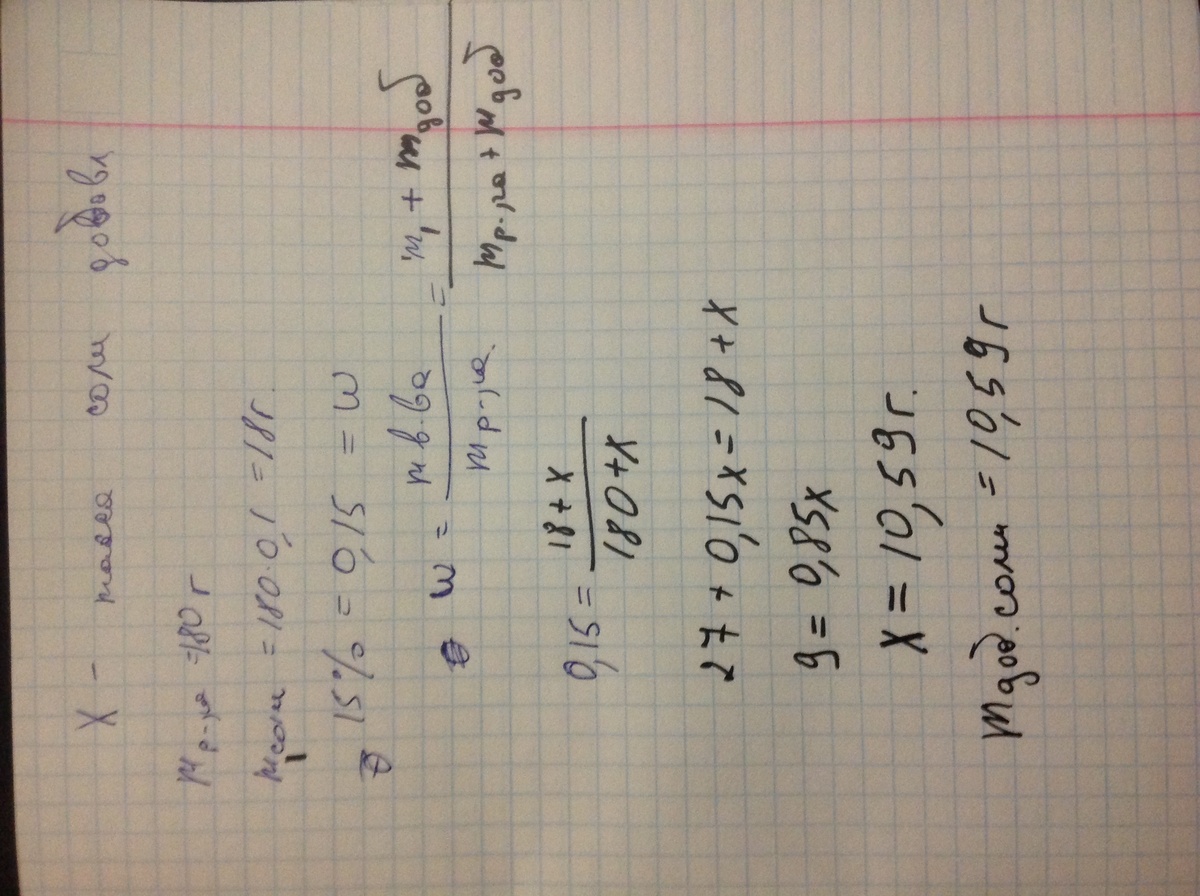 X - масса соли добавл
m р-ра = 180 г
m₁ соли = 180·0,1 = 18 г.
15% = 0,15 = ω
ω = m в-ва / m р-ра. = m₁ + m доб / m р-ра + m доб
0,15 = 18 + x / 180 + x
27 + 0,15x = 18 + x
9 = 0,85x
x = 10,59 г.
m доб. соли = 10,59 г